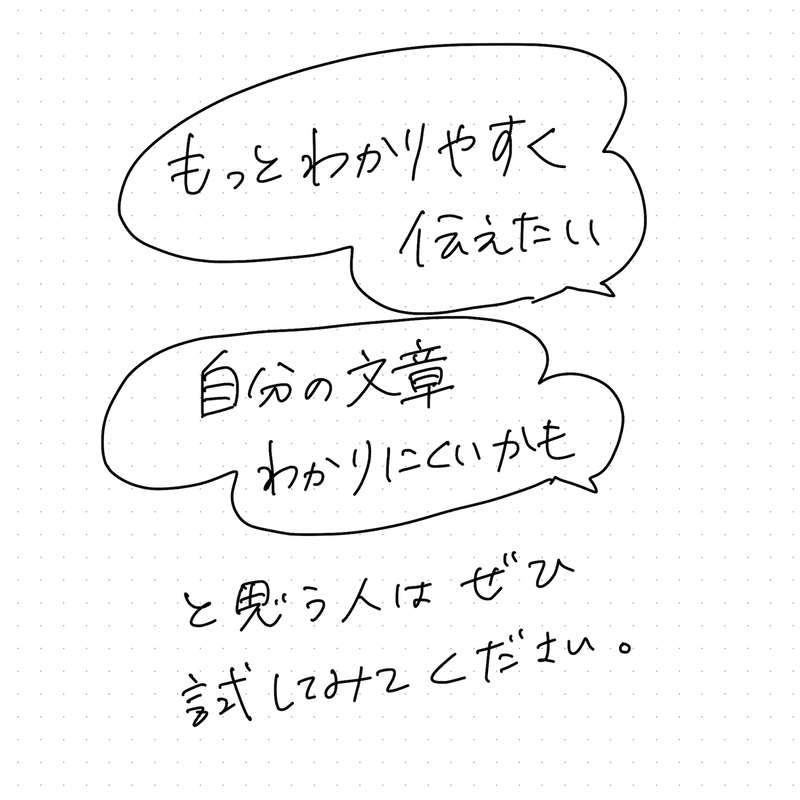 もっとわかりやすく
伝えたい
自分の文章
わかりにくいかも
と思う人はぜひ
試してみてください。